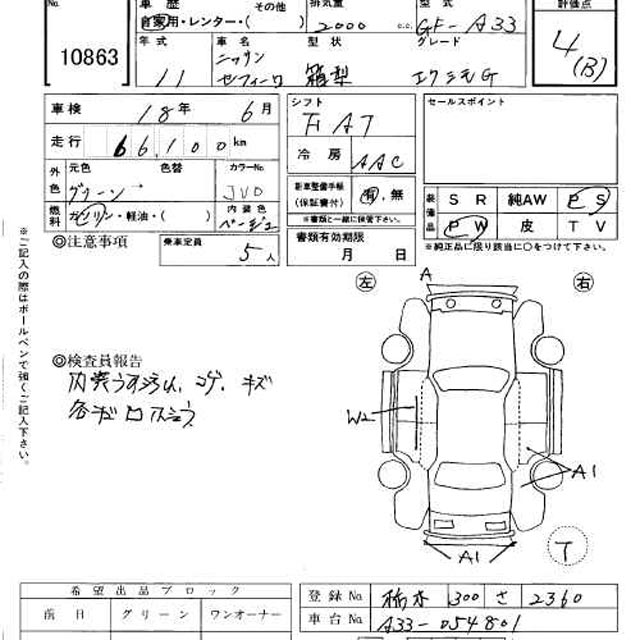 No.
10863
車歴
その他
自家用・レンター・( )
排気量
2000 c.c.
型式
GF-A33
評価点
4
(B)
年式
11
車名
ニッサン
セフィーロ
型状
箱型
グレード
エクシモG
車検
18年 6月
走行
66,100 km
シフト
F AT
冷房
AAC
セールスポイント
外色
元色
グリーン
色替
カラーNo.
JVO
燃料
ガソリン・軽油・( )
内装色
ベージュ
新車整備手帳
(保証書付)
有・無
※書類と一緒に保管下さい。
装備品
SR
純AW
PS
PW
皮
TV
※純正品に限り該当に〇をつけて下さい。
◎注意事項
乗車定員
5人
書類有効期限
月 日
※ご記入の際はボールペンで強くご記入下さい。
左
A
右
◎検査員報告
内装うすヨゴレ、コゲ、キズ
W2
A1
A1
T
希望出品ブロック
前日
グリーン
ワンオーナー
登録No.
栃木 300 さ 2360
車台No.
A33-054801